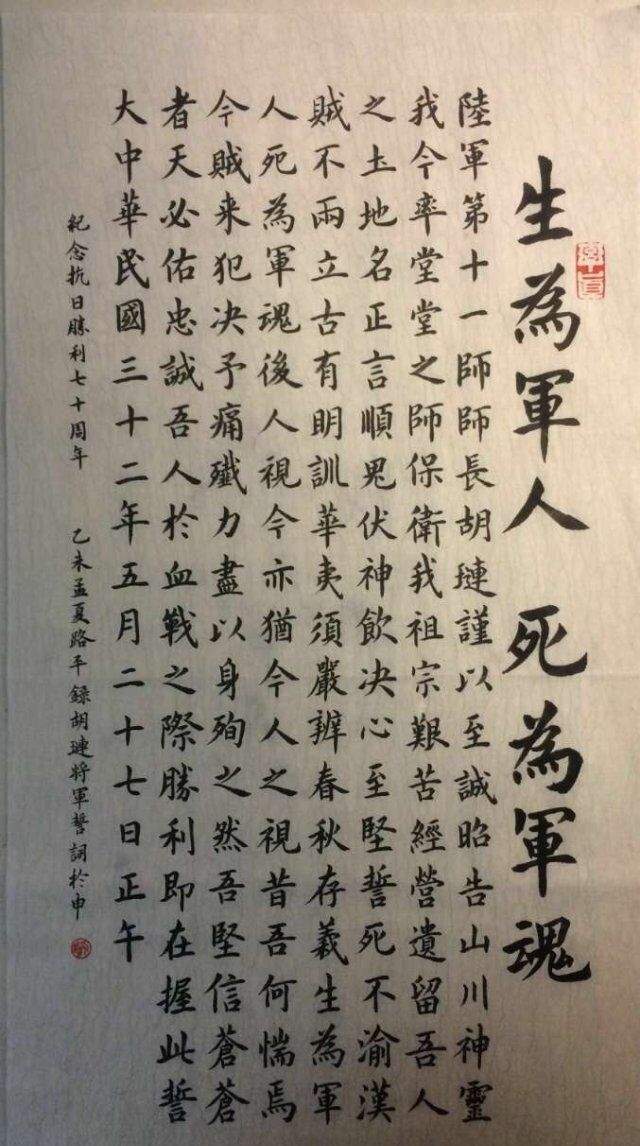 生為軍人 死為軍魂
陸軍第十一師師長胡璉謹以至誠昭告山川神靈
我今率堂堂之師保衛我祖宗艱苦經營遺留吾人
之土地名正言順鬼伏神飲决心至堅誓死不渝漢
賊不兩立古有明訓華夷須嚴辨春秋存義生為軍
人死為軍魂後人視今亦猶今人之視昔吾何惴焉
今賊来犯决予痛殲力盡以身殉之然吾堅信蒼蒼
者天必佑忠誠吾人於血戰之際勝利即在握此誓
大中華民國三十二年五月二十七日正午
紀念抗日勝利七十周年 乙未孟夏路平録胡璉將軍誓詞於申